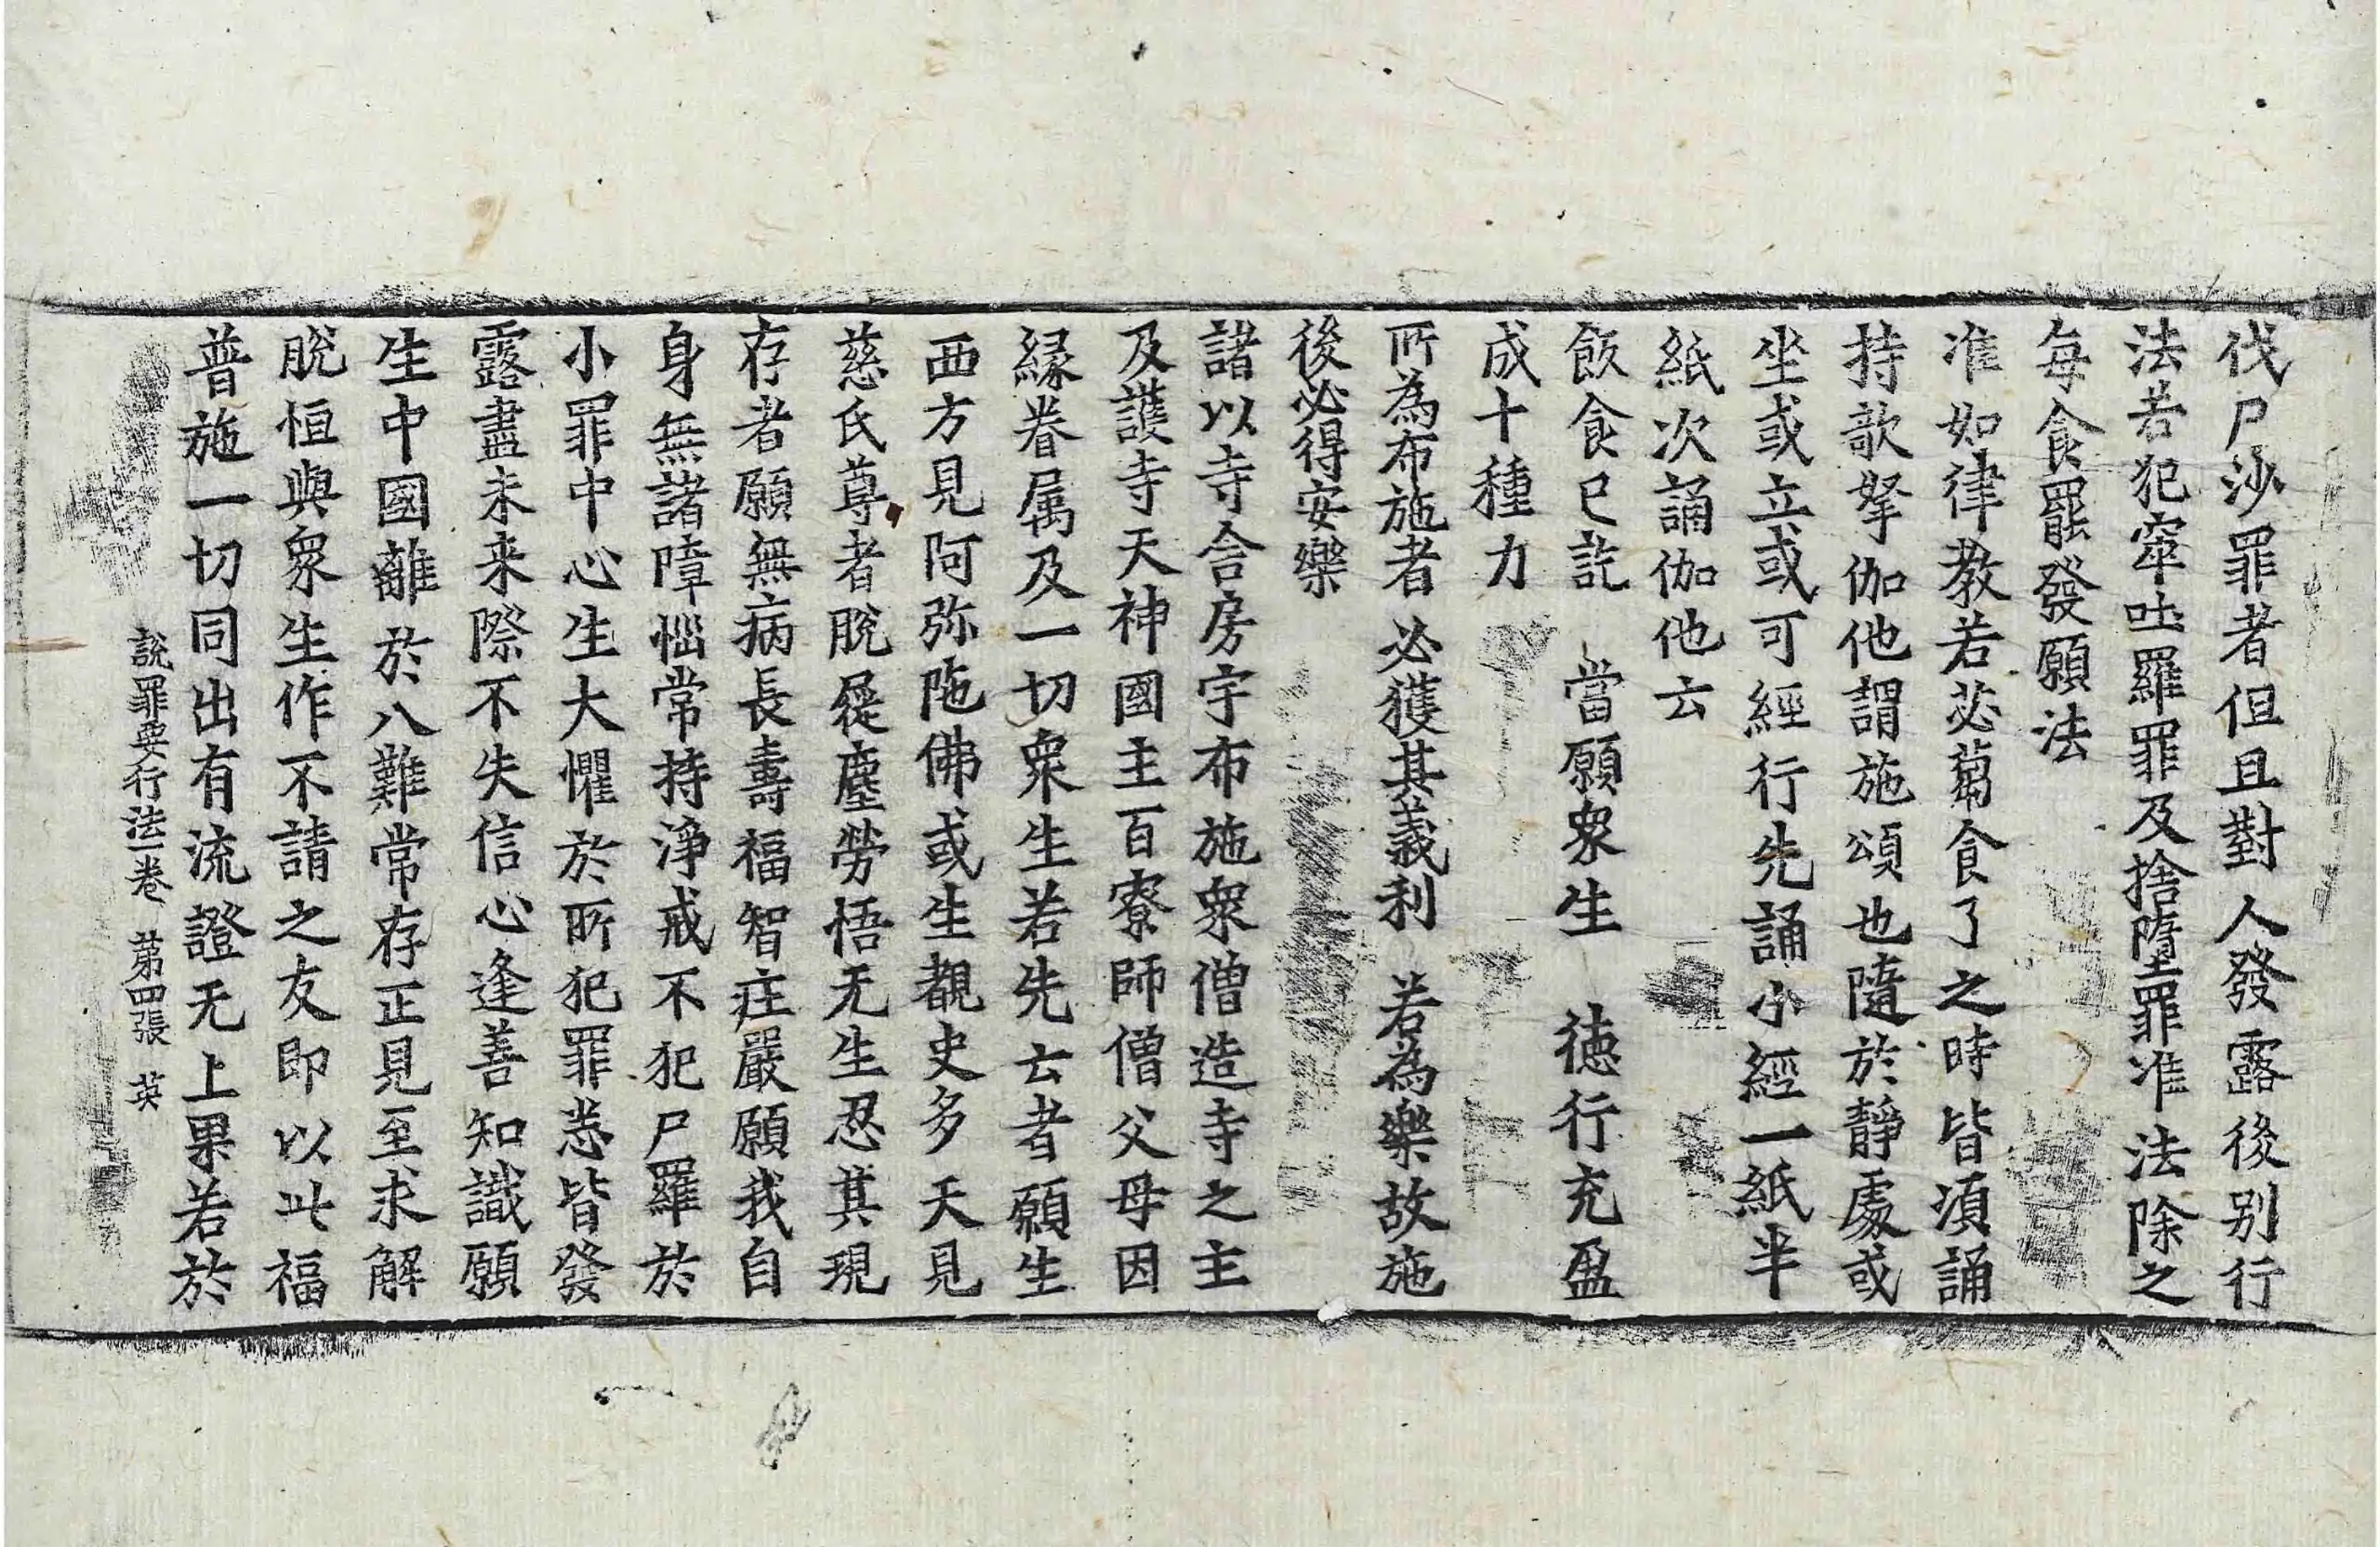 伐尸沙罪者但且對人發露後別行
法若犯窣吐羅罪及捨墮罪准法除之
每食罷發願法
准如律教若苾蒭食了之時皆湏誦
持歌拏伽他謂施頌也隨於靜處或
坐或立或可經行先誦小經一紙半
紙次誦伽他云
飲食已訖 當願衆生 徳行充盈
成十種力
所為布施者 必獲其義利 若為樂故施
後必得安樂
諸以寺舍房宇布施衆僧造寺之主
及護寺天神國主百寮師僧父母因
緣眷属及一切衆生若先云者願生
西方見阿弥陁佛或生覩史多天見
慈氏尊者脫屣塵勞悟无生忍其現
存者願無病長壽福智庄嚴願我自
身無諸障惱常持淨戒不犯尸羅於
小罪中心生大懼於所犯罪悉皆發
露盡未来際不失信心逢善知識願
生中國離於八難常存正見至求解
脫恒與衆生作不請之友即以此福
普施一切同出有流證无上果若於
說罪要行法一卷 苐四張 英